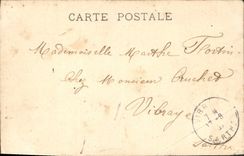 CARTE POSTALE
Mademoiselle Marthe Fortin
Chez Monsieur Cruchet
Vibray
SARTHE
Sarthe